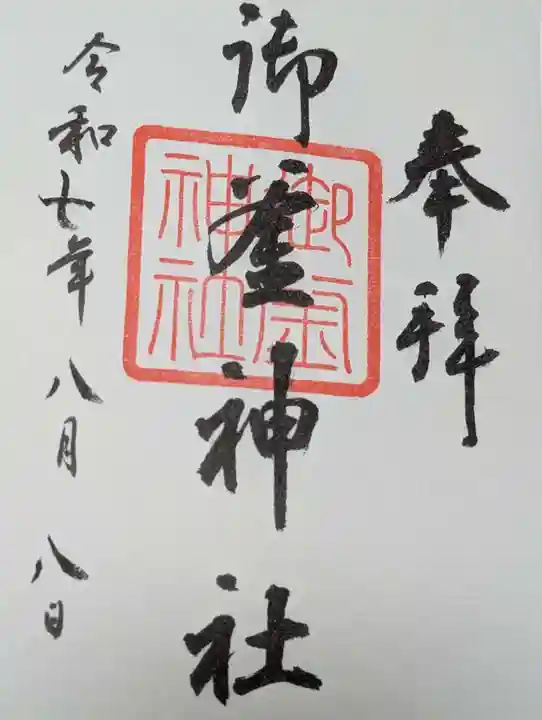 奉拝
御釜神社
御釜神社
令和七年八月八日